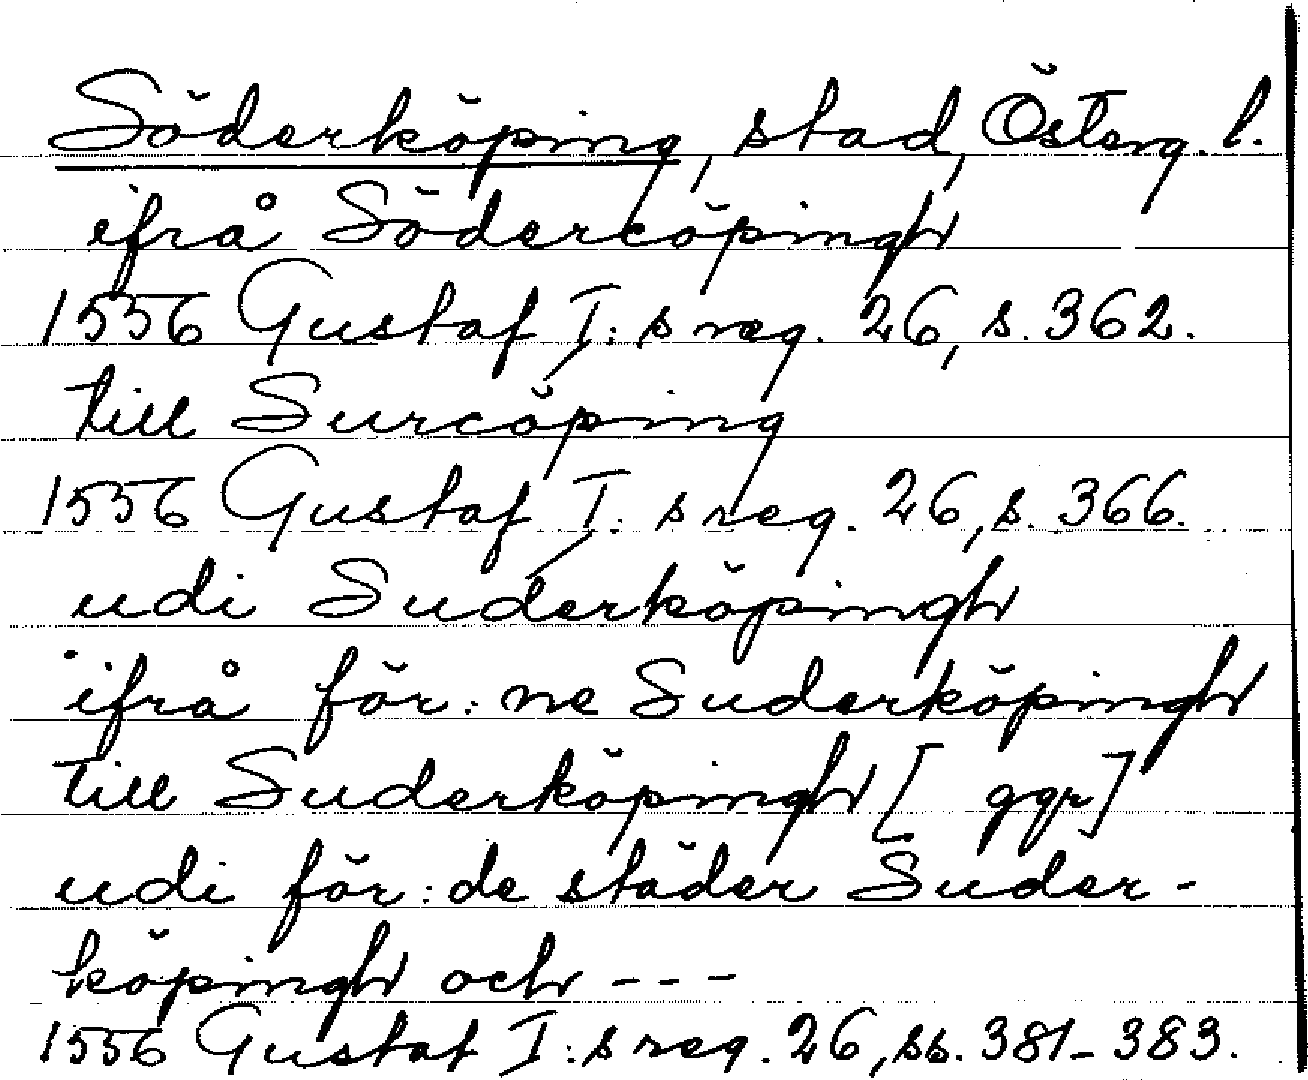 Söderköping, stad, Österg. l.
ifrå Södercöpingh
1556 Gustaf I:s reg. 26, s. 362.
till Surcöping
1556 Gustaf I:s reg. 26, s. 366.
udi Suderköpingh
ifrå för:ne Suderköpingh
till Suderköpingh [ ggr]
udi för:de städer Suder-
köpingh och ---
1556 Gustaf I:s reg. 26, ss. 381-383.